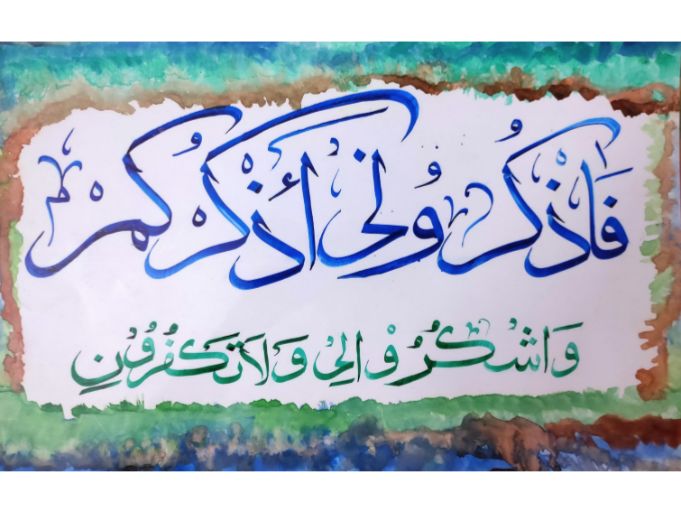 فَاذْكُرُونِي أَذْكُرْكُمْ
وَاشْكُرُوْالِيْ وَلَا تَكْفُرُوْنِ